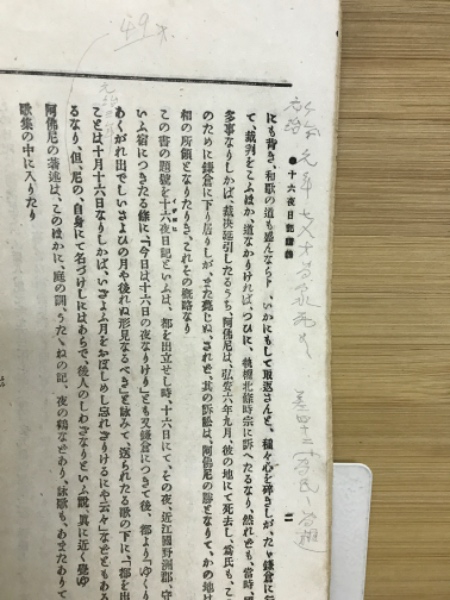 十六夜日記
二
にも背き、和歌の道も盛んならず、いかにもして取返さんと、種々心を砕きしが、たゞ鎌倉に
て、裁判をこふほか、道なかりければ、つひに、執權北條時宗に訴へたるなり、然れども、當時、
多事なりしかば、裁决延引したるうち、阿佛尼は、弘安六年九月、彼の地にて死去し、爲氏も、こ
のために鎌倉に下り居りしが、また薨じぬ、されど、其の訴訟は、阿佛尼の勝となりて、かの地は
和の所領となりたりき、これその概略なり
この書の題號を十六夜日記といふは、都を出立せし時、十六日にて、その夜、近江國野洲郡、守
いふ宿につきたる條に、「今日は十六日の夜なりけり」とも又鎌倉につきて後、都より「ゆくり
あくがれ出でしいさよひの月や後れぬ形見なるべき」と詠みて、送られたる歌の下に、「都を出
ことは十月十六日なりしかば、いさよふ月をおぼしめし忘れざりけるにや云々」などともある
るなり、但、尼の、自身にて名づけしにはあらで、後人のしわざなりといふ說、眞に近く覺ゆ
阿佛尼の著述は、このほかに、庭の訓、うたゝねの記、夜の鶴などあり、詠歌も、あまたありて
歌集の中に入りたり
49才